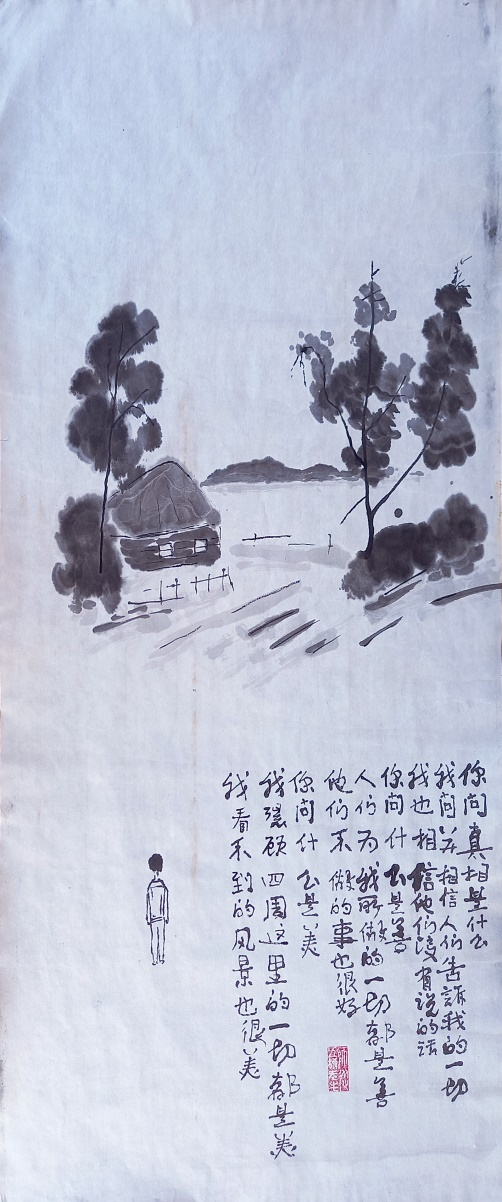 你问真相是什么
我问并相信人们告訴我的一切
我也相信他们没有说的话
你问什么是善
人们为我所做的一切都是善
他们不做的事也很好
你问什么是美
我環顾四周这里的一切都是美
我看不到的风景也很美